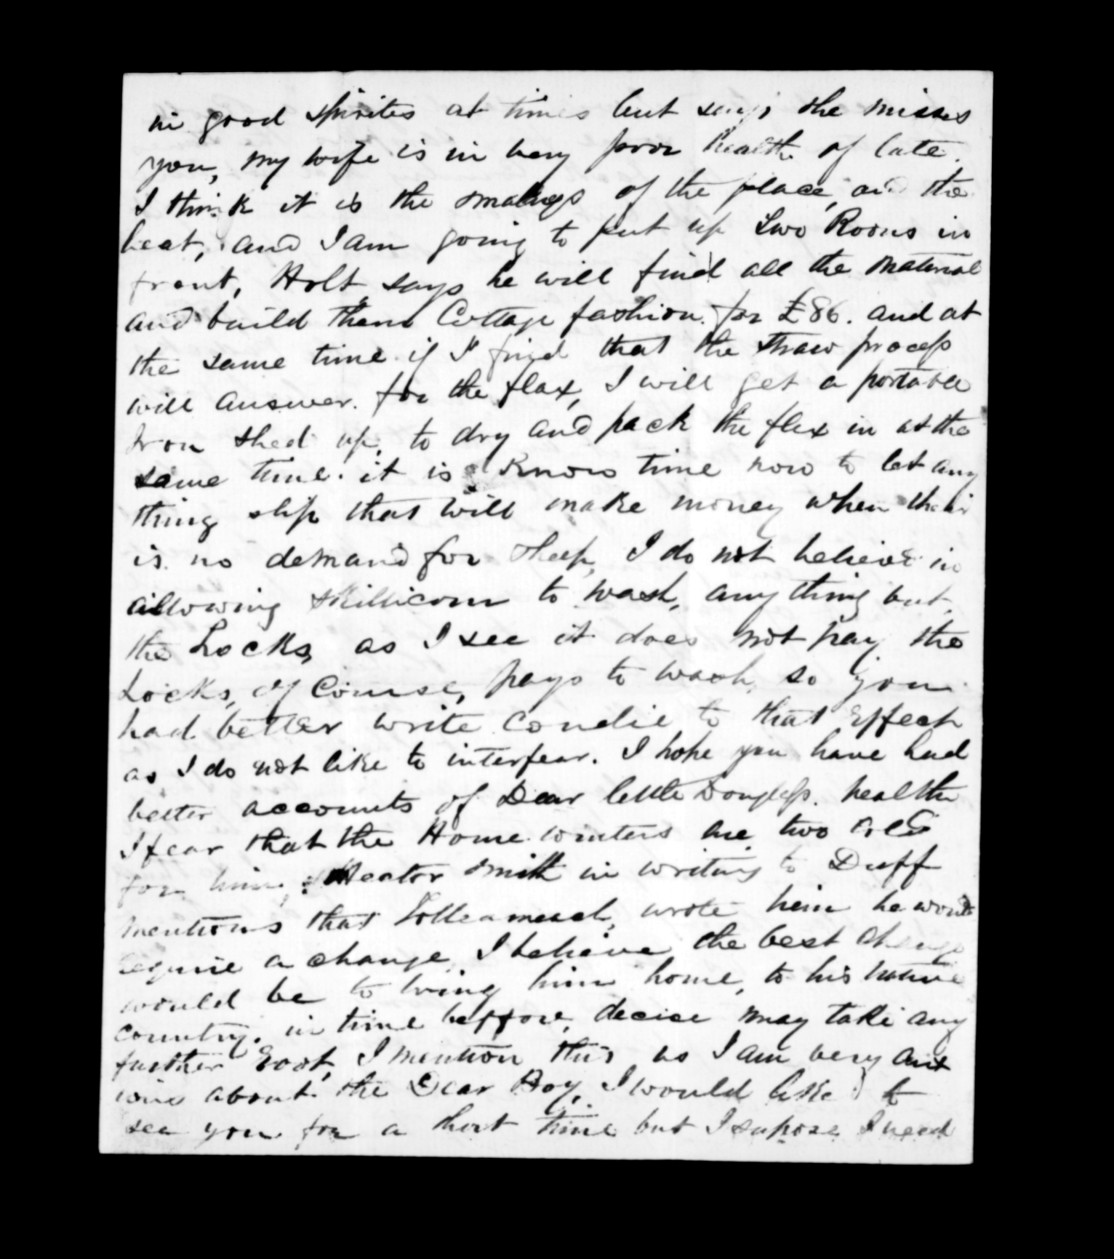 in good spirites at times but says she misses
you, my wife is in very poor health of late.
I think it is the smallnefs of the place, and the
heat, and I am going to put up two Rooms in
front, Holt says he will find all the material
and build them Cottage fashion. for £86. and at
the same time if I find that the straw procefs
will answer. for the flax, I will get a portable
Iron shed up, to dry and pack the flax in at the
same time. it is know time now to let any
thing slip that will make money when their
is no demand for sheep, I do not believe in
allowing Skillicorn to wash, any thing but,
the Locks, as I see it does not pay the
Locks, of Course, pays to wash, so you
had better write Condie to that Effect
as I do not like to interfear. I hope you have had
better accounts of Dear little Douglefs. health
I fear that the Home winters are two Cold
for him, Heator Smith in writing to Duff
mentions that wrote him he would
require a change, I believe the best change
would be to bring him home, to his native
country. in time beffore, decise may take any
further Root, I mention this as I am very anx
ious about the Dear Boy, I would like to
see you for a short time but I supose I need